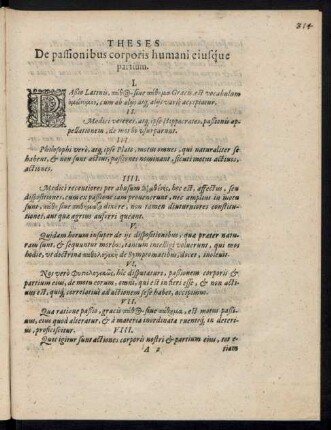 314
THESES
De passionibus corporis humani eiusque
partium.
I.
PAssio Latinis, πάθος siue πάθημα Græcis, est vocabulum
cum ab alijs atq; alijs variè accipiatur.
II.
Medici veteres, atq; ipse Hippocrates, passionis ap-
pellationem, de morbis vsurparunt.
III.
Philosophi verò, atq; ipse Plato, motus omnes, qui naturaliter se
habent, & non sunt actiui, passiones nominant, sicuti motus actiuos,
actiones.
IIII.
Medici recentiores per abusum hoc est, affectus, seu
dispositiones, cum ex passione iam permanserunt, nec amplius in motu
sunt, siue dicere, non tamen diuturniores consti-
tutiones, aut qua agrius auferri queant.
V.
Quidam horum insuper de ijs dispositionibus, qua præter natu-
ram sunt, & sequuntur morbos, tantum intelligi voluerunt, qui mos
hodie, vt doctrina de symptomatibus, dicet, inoleuit.
VI.
Nos verò hic disputaturi, passionem corporis &
partium eius, de motu eorum, omni, qui est in fieri esse, & non acti-
uus est, quiq; correlatiuè ad actionem se se habet, accipimus.
VII.
Qua ratione passio, græcis πάθος siue πάθημα, est motus passi-
uus, eius quod alteratur, & à materia inordinata ruentiq; in deteri-
us, proficiscitur.
VIII.
Quot igitur sunt actiones corporis nostri & partium eius, tot et-
A 2 etiam